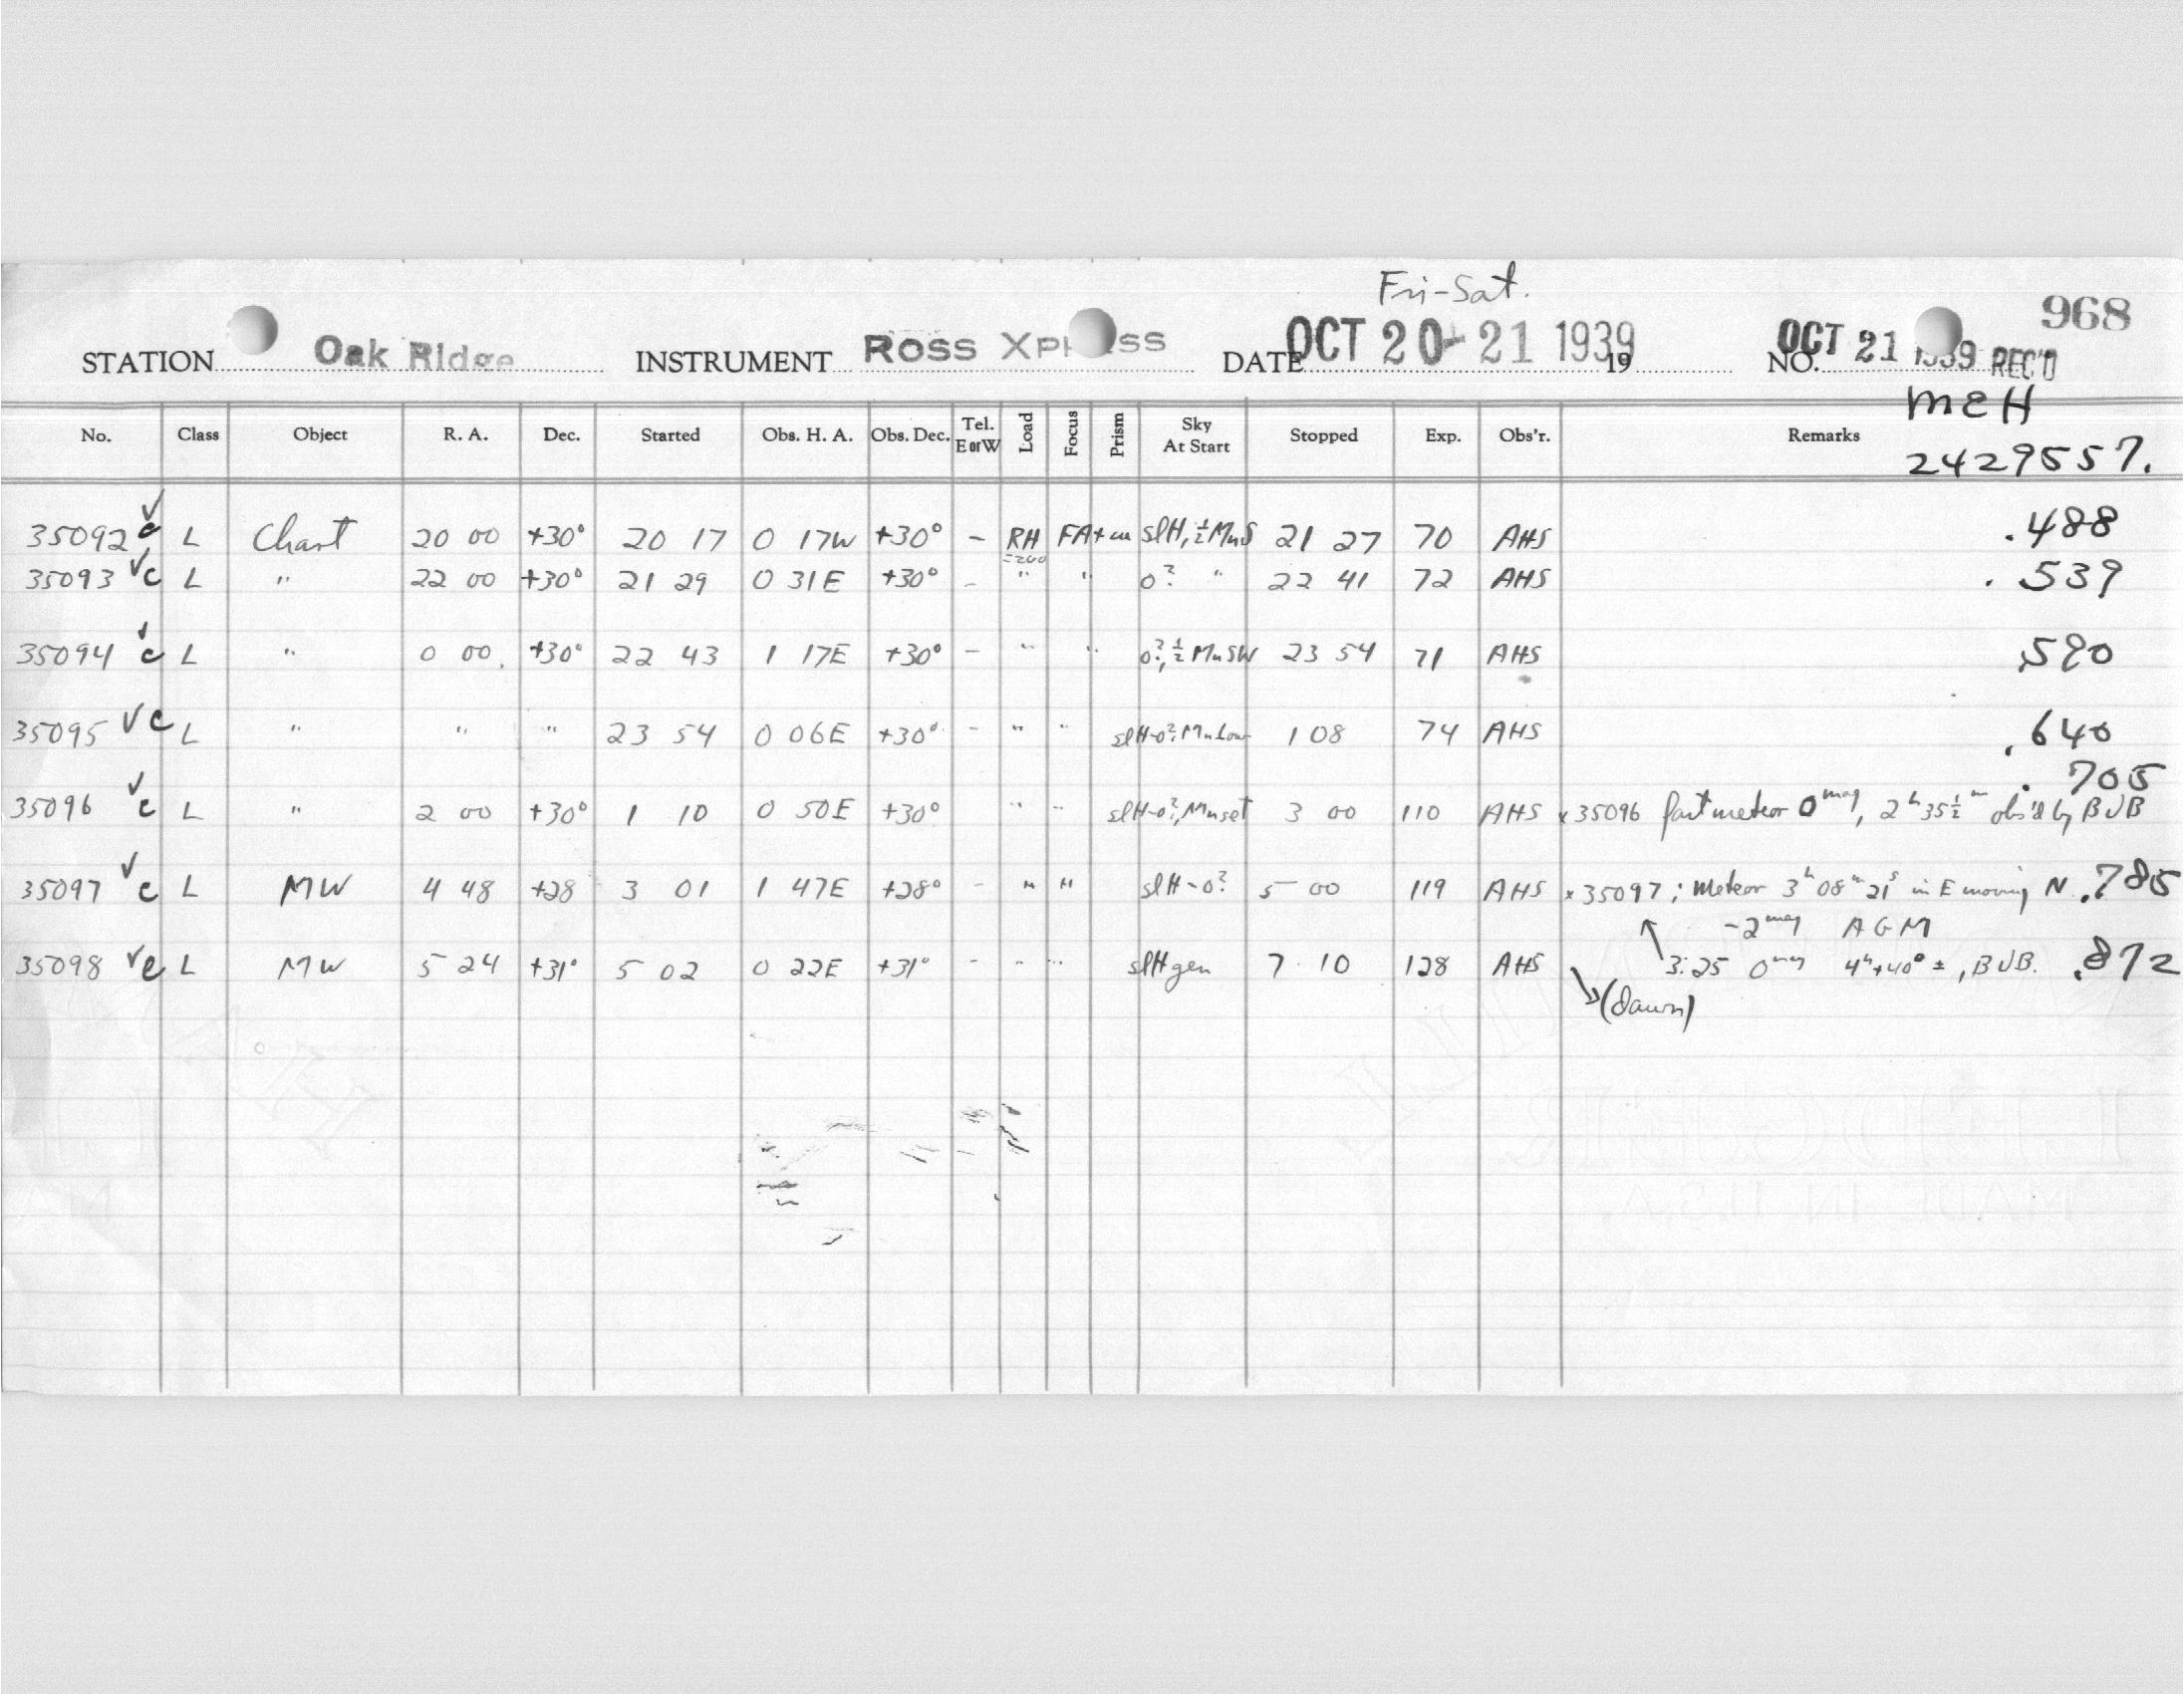 Fri-Sat.
968
STATION Oak Ridge INSTRUMENT ROSS XPRESS DATE OCT 20-21 1939 19 NO. OCT 21 1939 REC'D
MEH
No. Class Object R. A. Dec. Started Obs. H. A. Obs. Dec. Tel. E or W Load Focus Prism Sky At Start Stopped Exp. Obs'r. Remarks
2429557.
35092 √c L Chart 20 00 +30° 20 17 0 17W +30° - RH FA+ slH, ½MnS 21 27 70 AHS .488
35093 √c L " 22 00 +30° 21 29 0 31E +30° - " " 0? " 22 41 72 AHS .539
35094 √c L " 0 00 +30° 22 43 1 17E +30° - " " 0?, ½MnSW 23 54 71 AHS .590
35095 √c L " " " 23 54 0 06E +30° - " " slH-0? MnLow 1 08 74 AHS .640
.705
35096 √c L " 2 00 +30° 1 10 0 50E +30° " " slH-0?, Mnset 3 00 110 AHS x35096 fast meteor 0mag, 2h 35½m obs'd by BJB
35097 √c L MW 4 48 +28 3 01 1 47E +28° - " " slH-0? 5 00 119 AHS x35097; Meteor 3h 08m 21s in E moving N .785
-2mag AGM
35098 √c L MW 5 24 +31° 5 02 0 22E +31° - " " slH gen 7 10 128 AHS 3:25 0mag 4h+40° ±, BJB. .872
(dawn)